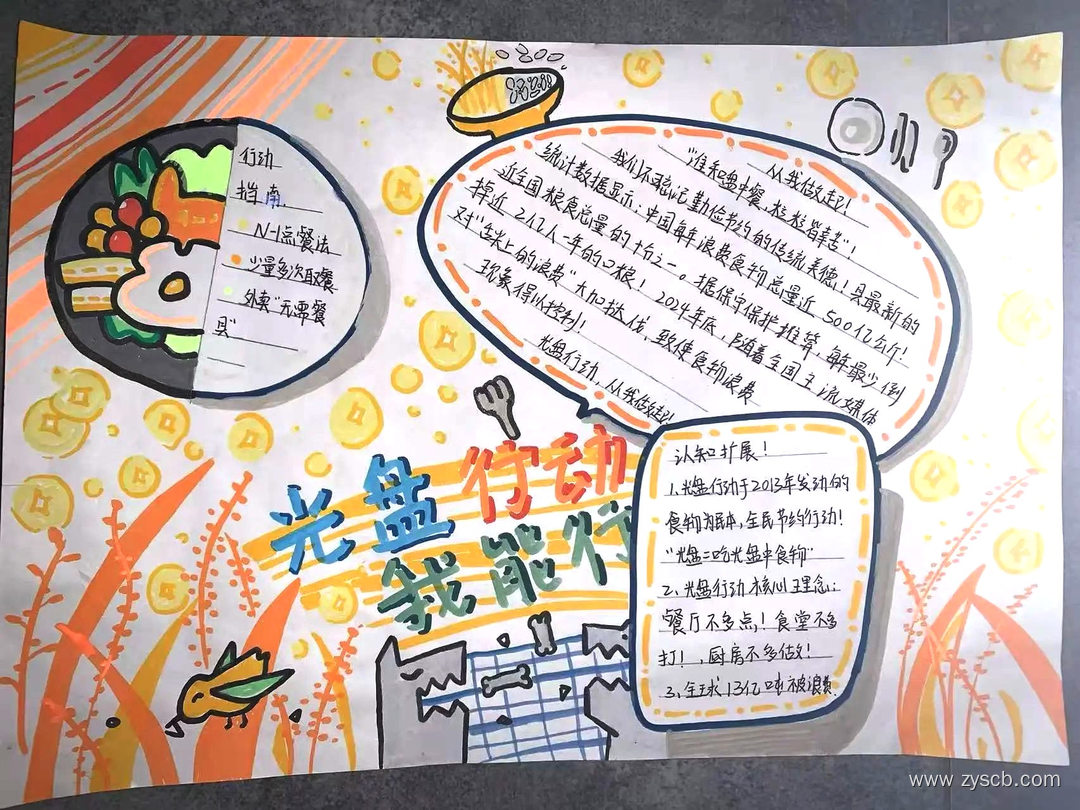 行动
指南
N-1点餐法
少量多次取餐
外卖“无需餐
具”
从我做起!
“谁知盘中餐,粒粒皆辛苦”!
我们不能忘记勤俭节约的传统美德!具最新的
统计数据显示,中国每年浪费食物总量近500亿公斤!
近全国粮食总量的十分之一。据保守保护推算,每年最少倒
掉近2亿人一年的口粮!2024年底,随着全国主流媒体
对“舌尖上的浪费”大加挞伐,致使食物浪费
现象得以控制!
光盘行动,从我做起!
认知扩展!
1.光盘行动于2013年发动的
食物为民本,全民节约行动!
“光盘=吃光盘中食物”
2、光盘行动核心理念:
餐厅不多点!食堂不多
打!,厨房不多做!
3、全球13亿吨被浪费
光盘行动
我能行
www.zyscb.com